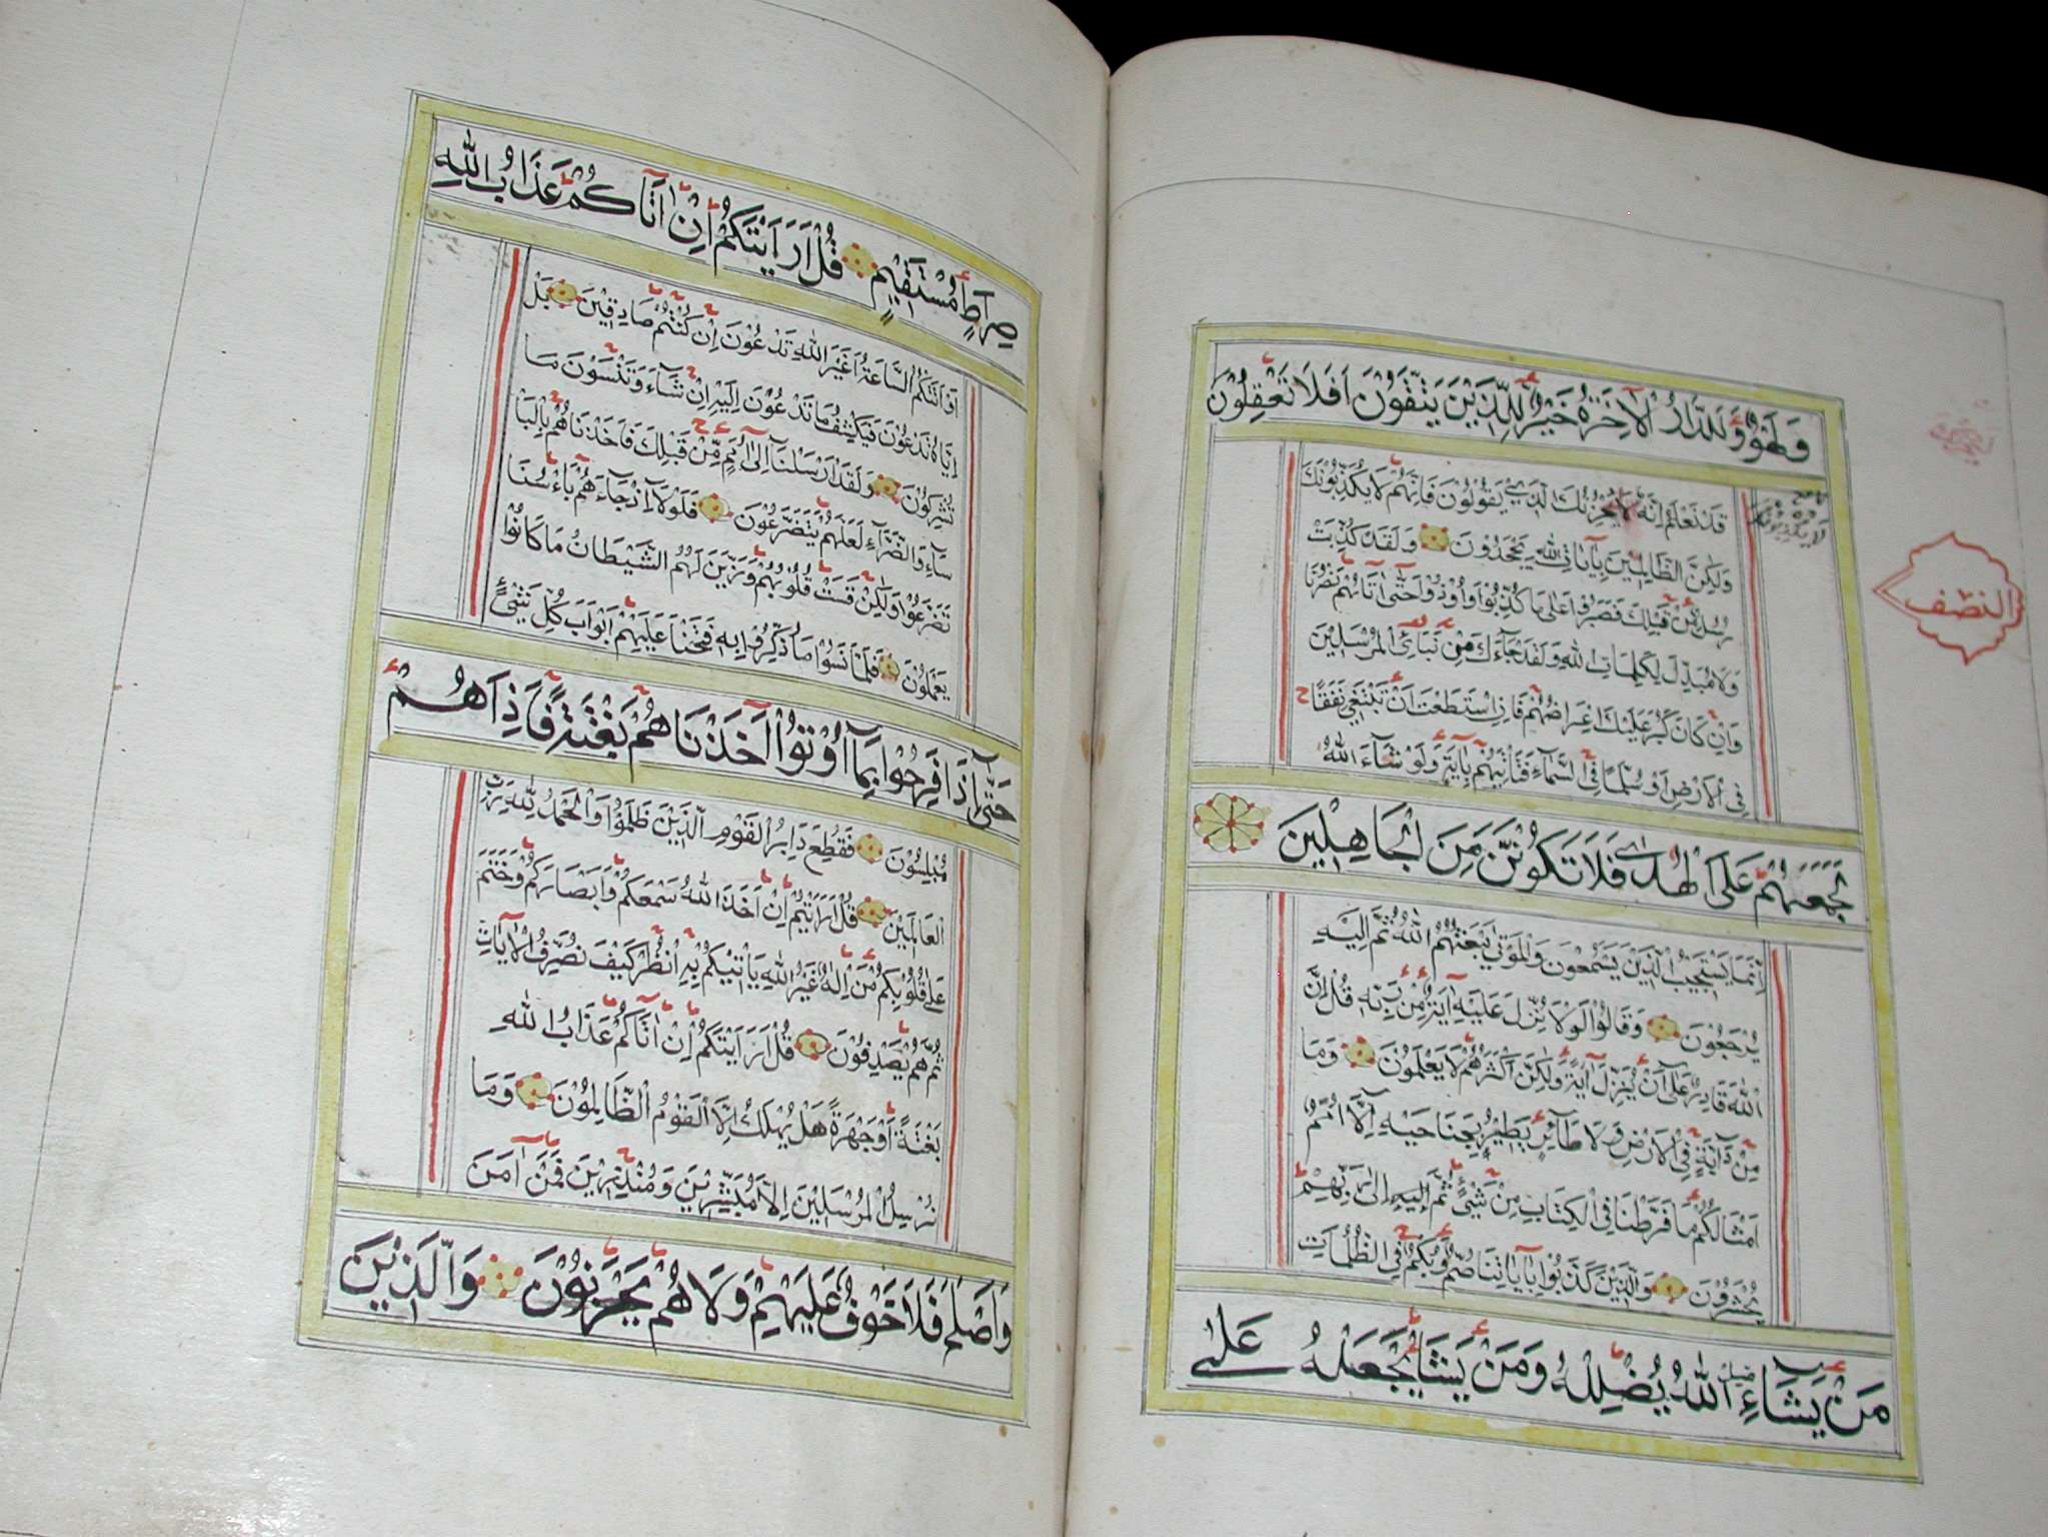 وَلَهْوٌ وَلَلدَّارُ الْآخِرَةُ خَيْرٌ لِلَّذِينَ يَتَّقُونَ أَفَلَا تَعْقِلُونَ
قَدْ نَعْلَمُ إِنَّهُ لَيَحْزُنُكَ الَّذِي يَقُولُونَ فَإِنَّهُمْ لَا يُكَذِّبُونَكَ
وَلَكِنَّ الظَّالِمِينَ بِآيَاتِ اللهِ يَجْحَدُونَ وَلَقَدْ كُذِّبَتْ
رُسُلٌ مِنْ قَبْلِكَ فَصَبَرُوا عَلَى مَا كُذِّبُوا وَأُوذُوا حَتَّى أَتَاهُمْ نَصْرُنَا
وَلَا مُبَدِّلَ لِكَلِمَاتِ اللهِ وَلَقَدْ جَاءَكَ مِنْ نَبَائِ الْمُرْسَلِينَ
وَإِنْ كَانَ كَبُرَ عَلَيْكَ إِعْرَاضُهُمْ فَإِنِ اسْتَطَعْتَ أَنْ تَبْتَغِيَ نَفَقًا
فِي الْأَرْضِ أَوْ سُلَّمًا فِي السَّمَاءِ فَتَأْتِيَهُمْ بِآيَةٍ وَلَوْ شَاءَ اللهُ
لَجَمَعَهُمْ عَلَى الْهُدَى فَلَا تَكُونَنَّ مِنَ الْجَاهِلِينَ
إِنَّمَا يَسْتَجِيبُ الَّذِينَ يَسْمَعُونَ وَالْمَوْتَى يَبْعَثُهُمُ اللهُ ثُمَّ إِلَيْهِ
يُرْجَعُونَ وَقَالُوا لَوْلَا نُزِّلَ عَلَيْهِ آيَةٌ مِنْ رَبِّهِ قُلْ إِنَّ
اللهَ قَادِرٌ عَلَى أَنْ يُنَزِّلَ آيَةً وَلَكِنَّ أَكْثَرَهُمْ لَا يَعْلَمُونَ وَمَا
مِنْ دَابَّةٍ فِي الْأَرْضِ وَلَا طَائِرٍ يَطِيرُ بِجَنَاحَيْهِ إِلَّا أُمَمٌ
أَمْثَالُكُمْ مَا فَرَّطْنَا فِي الْكِتَابِ مِنْ شَيْءٍ ثُمَّ إِلَى رَبِّهِمْ
يُحْشَرُونَ وَالَّذِينَ كَذَّبُوا بِآيَاتِنَا صُمٌّ وَبُكْمٌ فِي الظُّلُمَاتِ
مَنْ يَشَاءِ اللهُ يُضْلِلْهُ وَمَنْ يَشَأْ يَجْعَلْهُ عَلَى
لَا يُكَذِّبُونَكَ
النصف
صِرَاطٍ مُسْتَقِيمٍ قُلْ أَرَأَيْتَكُمْ إِنْ أَتَاكُمْ عَذَابُ اللهِ
أَوْ أَتَتْكُمُ السَّاعَةُ أَغَيْرَ اللهِ تَدْعُونَ إِنْ كُنْتُمْ صَادِقِينَ بَلْ
إِيَّاهُ تَدْعُونَ فَيَكْشِفُ مَا تَدْعُونَ إِلَيْهِ إِنْ شَاءَ وَتَنْسَوْنَ مَا
تُشْرِكُونَ وَلَقَدْ أَرْسَلْنَا إِلَى أُمَمٍ مِنْ قَبْلِكَ فَأَخَذْنَاهُمْ بِالْبَأْ
سَاءِ وَالضَّرَّاءِ لَعَلَّهُمْ يَتَضَرَّعُونَ فَلَوْلَا إِذْ جَاءَهُمْ بَأْسُنَا
تَضَرَّعُوا وَلَكِنْ قَسَتْ قُلُوبُهُمْ وَزَيَّنَ لَهُمُ الشَّيْطَانُ مَا كَانُوا
يَعْمَلُونَ فَلَمَّا نَسُوا مَا ذُكِّرُوا بِهِ فَتَحْنَا عَلَيْهِمْ أَبْوَابَ كُلِّ شَيْءٍ
حَتَّى إِذَا فَرِحُوا بِمَا أُوتُوا أَخَذْنَاهُمْ بَغْتَةً فَإِذَا هُمْ
مُبْلِسُونَ فَقُطِعَ دَابِرُ الْقَوْمِ الَّذِينَ ظَلَمُوا وَالْحَمْدُ لِلَّهِ رَبِّ
الْعَالَمِينَ قُلْ أَرَأَيْتُمْ إِنْ أَخَذَ اللهُ سَمْعَكُمْ وَأَبْصَارَكُمْ وَخَتَمَ
عَلَى قُلُوبِكُمْ مَنْ إِلَهٌ غَيْرُ اللهِ يَأْتِيكُمْ بِهِ انْظُرْ كَيْفَ نُصَرِّفُ الْآيَاتِ
ثُمَّ هُمْ يَصْدِفُونَ قُلْ أَرَأَيْتَكُمْ إِنْ أَتَاكُمْ عَذَابُ اللهِ
بَغْتَةً أَوْ جَهْرَةً هَلْ يُهْلَكُ إِلَّا الْقَوْمُ الظَّالِمُونَ وَمَا
نُرْسِلُ الْمُرْسَلِينَ إِلَّا مُبَشِّرِينَ وَمُنْذِرِينَ فَمَنْ آمَنَ
وَأَصْلَحَ فَلَا خَوْفٌ عَلَيْهِمْ وَلَا هُمْ يَحْزَنُونَ وَالَّذِينَ